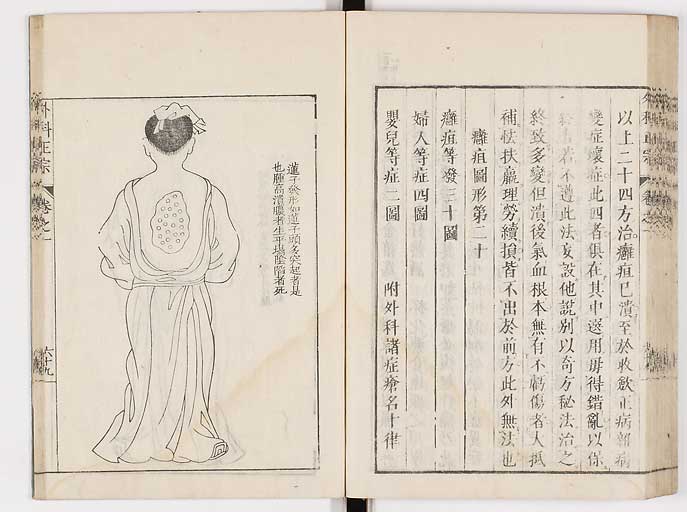 以上二十四方治癰疽已潰至於收斂正病雜病
變症壞症此四者俱在其中選用毋得錯亂以保
終若不遵此法妄設他說別以奇方秘法治之
終致多變但潰後氣血根本無有不虧傷者大抵
補怯扶羸理勞續損皆不出於前方此外無法也
癰疽圖形第二十
癰疽等發三十圖
婦人等症四圖
嬰兒等症二圖 附外科諸症瘡名十律
蓮子發形如蓮子頭多突起者是
也腫高潰膿者生平塌墜陷者死
外科正宗 卷之一 六十九